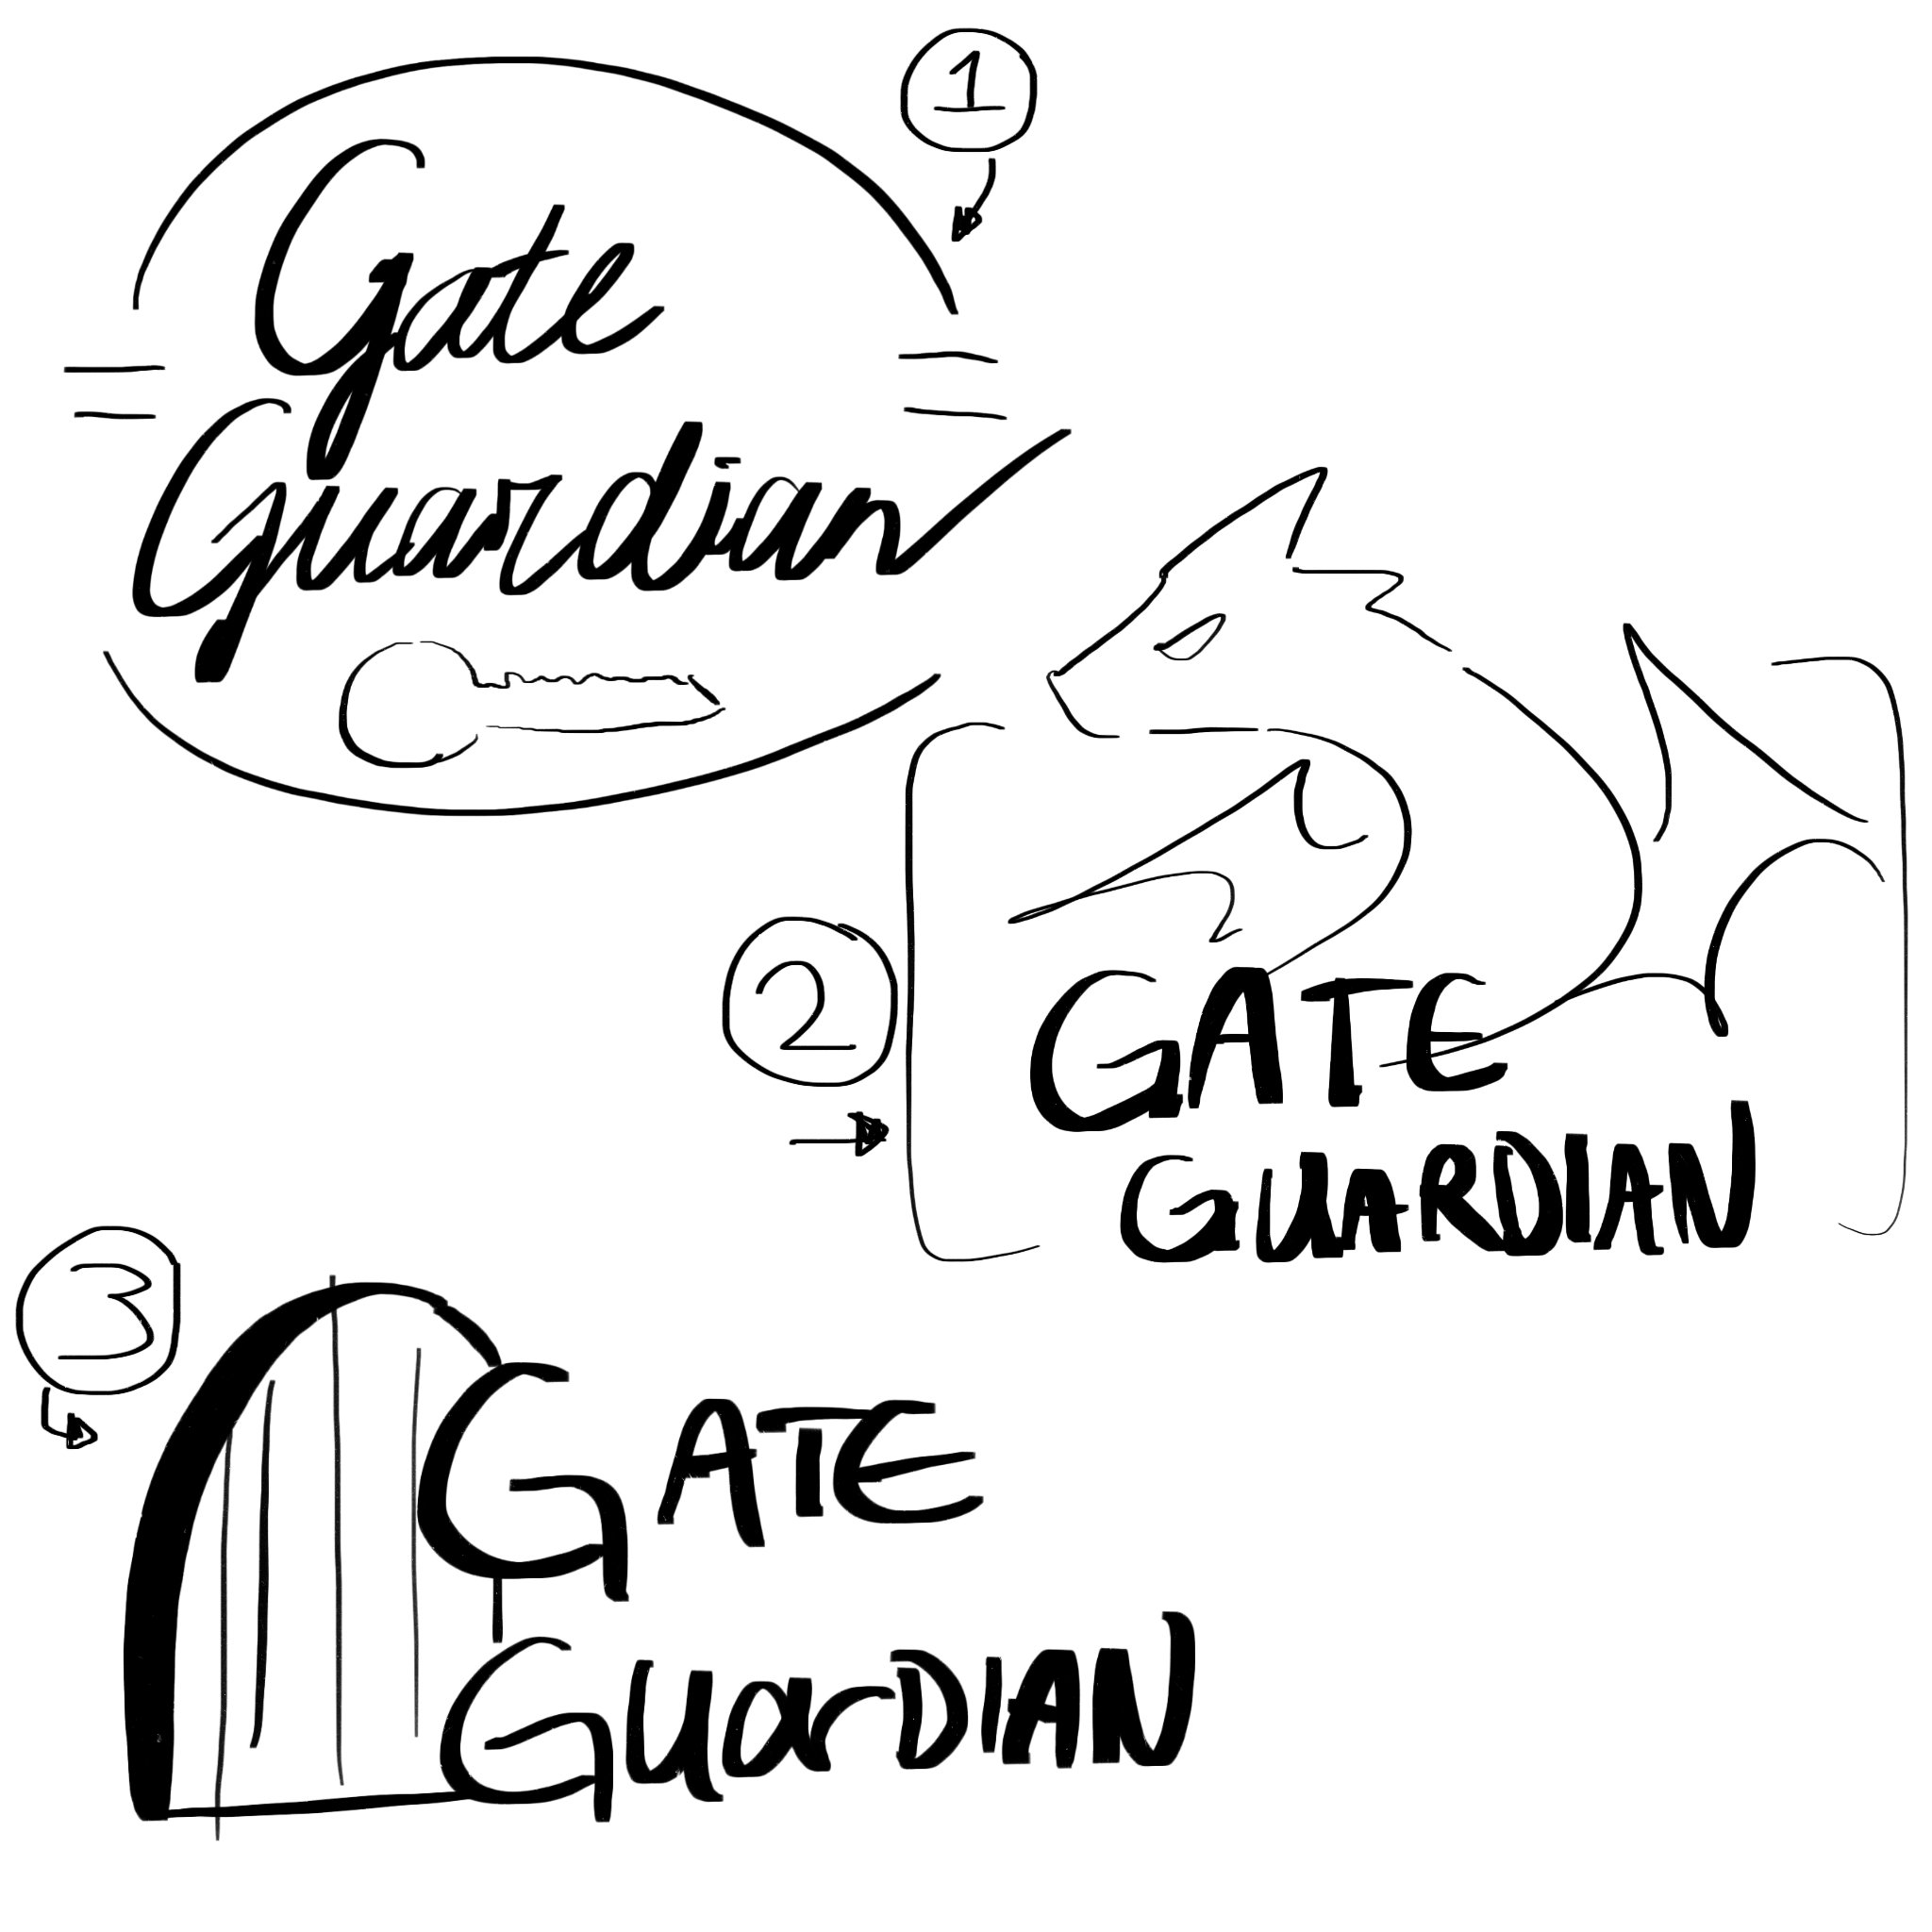 1
Gate
Guardian
2
GATE
GUARDIAN
3
GATE
GUarDIAN